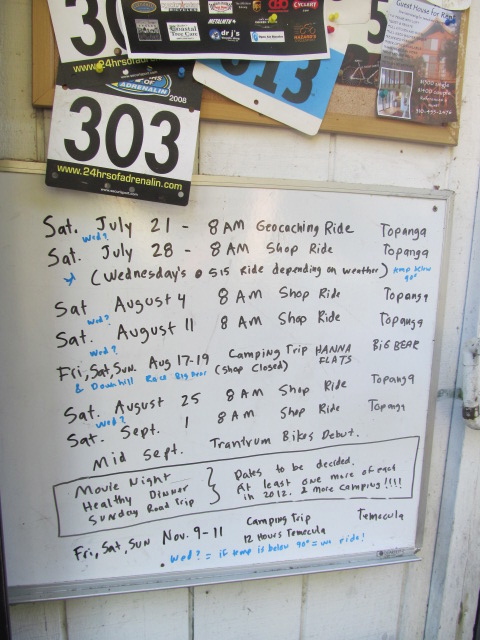 Guest House for Rent
Coastal
Tree Care
dr j's
CYCLERY
30
5
613
www.24hrsofadrenalin.com
OF ADRENALIN
2008
303
www.24hrsofadrenalin.com
Sat. July 21 - 8 AM Geocaching Ride Topanga
Wed?
Sat. July 28 - 8 AM Shop Ride Topanga
(Wednesday's @ 515 Ride depending on weather) temp below 90°
Sat August 4 8 AM Shop Ride Topanga
Wed?
Sat. August 11 8 AM Shop Ride Topanga
Wed?
Fri, Sat, Sun. Aug 17-19 Camping Trip HANNA FLATS BiG BEAR
& Downhill Race Big Bear (Shop Closed)
Sat. August 25 8 AM Shop Ride Topanga
Wed?
Sat. Sept. 1 8 AM Shop Ride Topanga
Mid Sept. Trantrum Bikes Debut.
Movie Night
Healthy Dinner
Sunday Road Trip
Dates to be decided.
At least one more of each
in 2012. & More camping!!!!
Fri, Sat, Sun Nov. 9-11 Camping Trip Temecula
12 Hours Temecula
Wed? = if temp is below 90° = we ride!